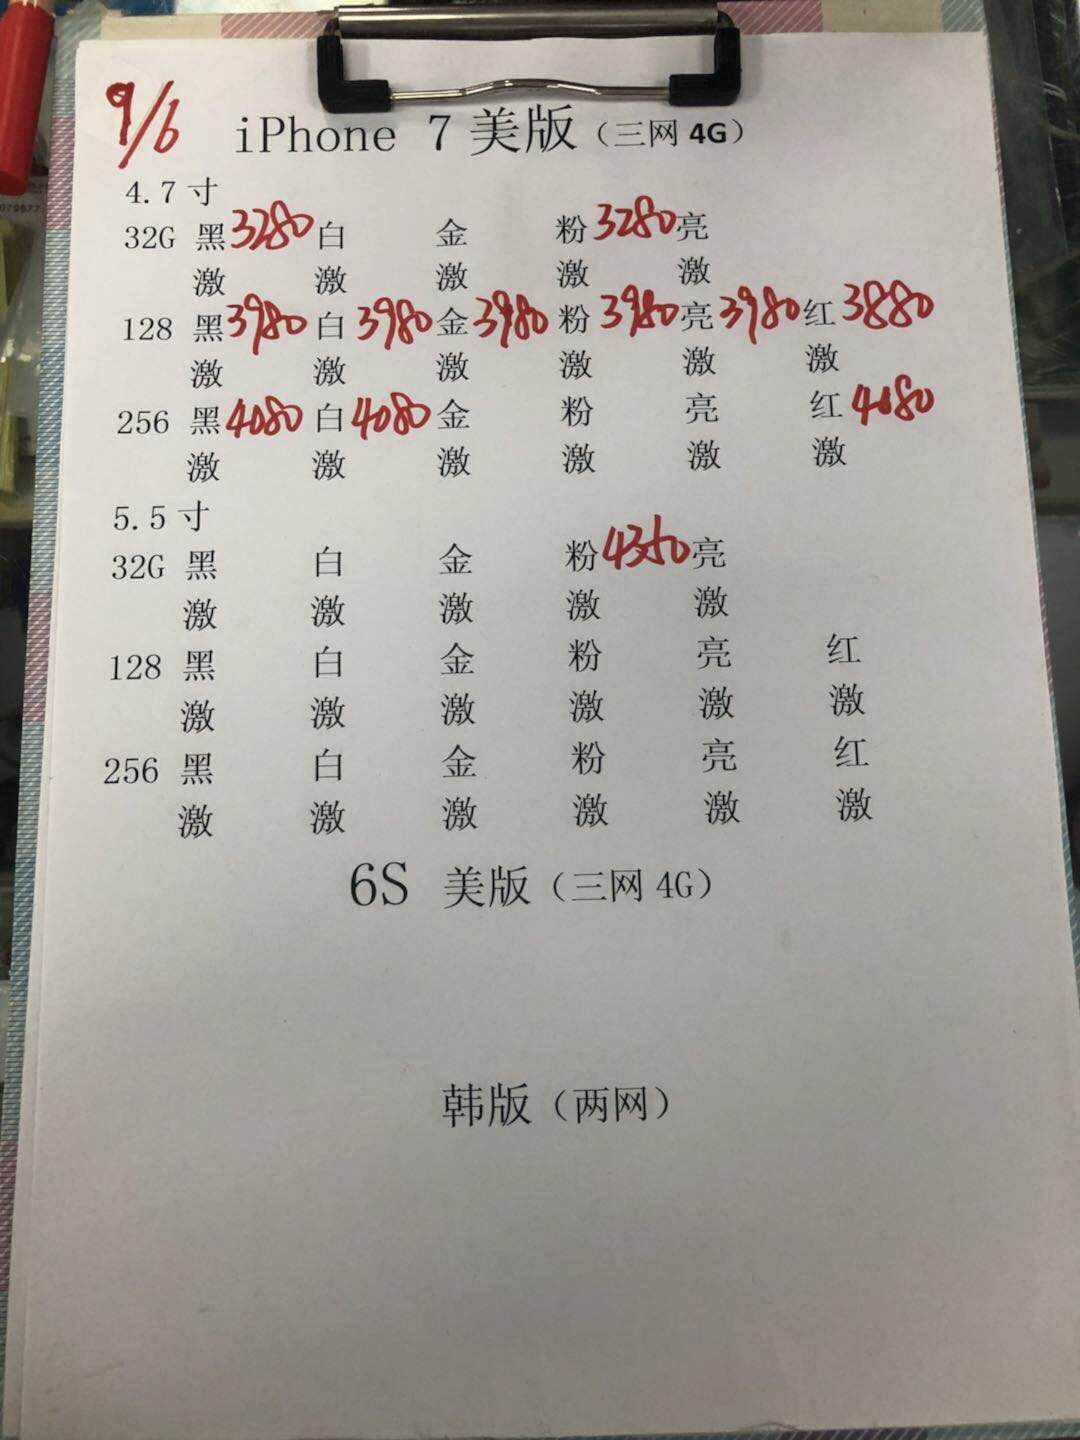 9/6
iPhone 7 美版（三网 4G）
4.7 寸
32G 黑 3280 白 金 粉 3280 亮
激 激 激 激 激
128 黑 3980 白 3980 金 3980 粉 3980 亮 3980 红 3880
激 激 激 激 激 激
256 黑 4080 白 4080 金 粉 亮 红 4080
激 激 激 激 激 激
5.5 寸
32G 黑 白 金 粉 4350 亮
激 激 激 激 激
128 黑 白 金 粉 亮 红
激 激 激 激 激 激
256 黑 白 金 粉 亮 红
激 激 激 激 激 激
6S 美版（三网 4G）
韩版（两网）